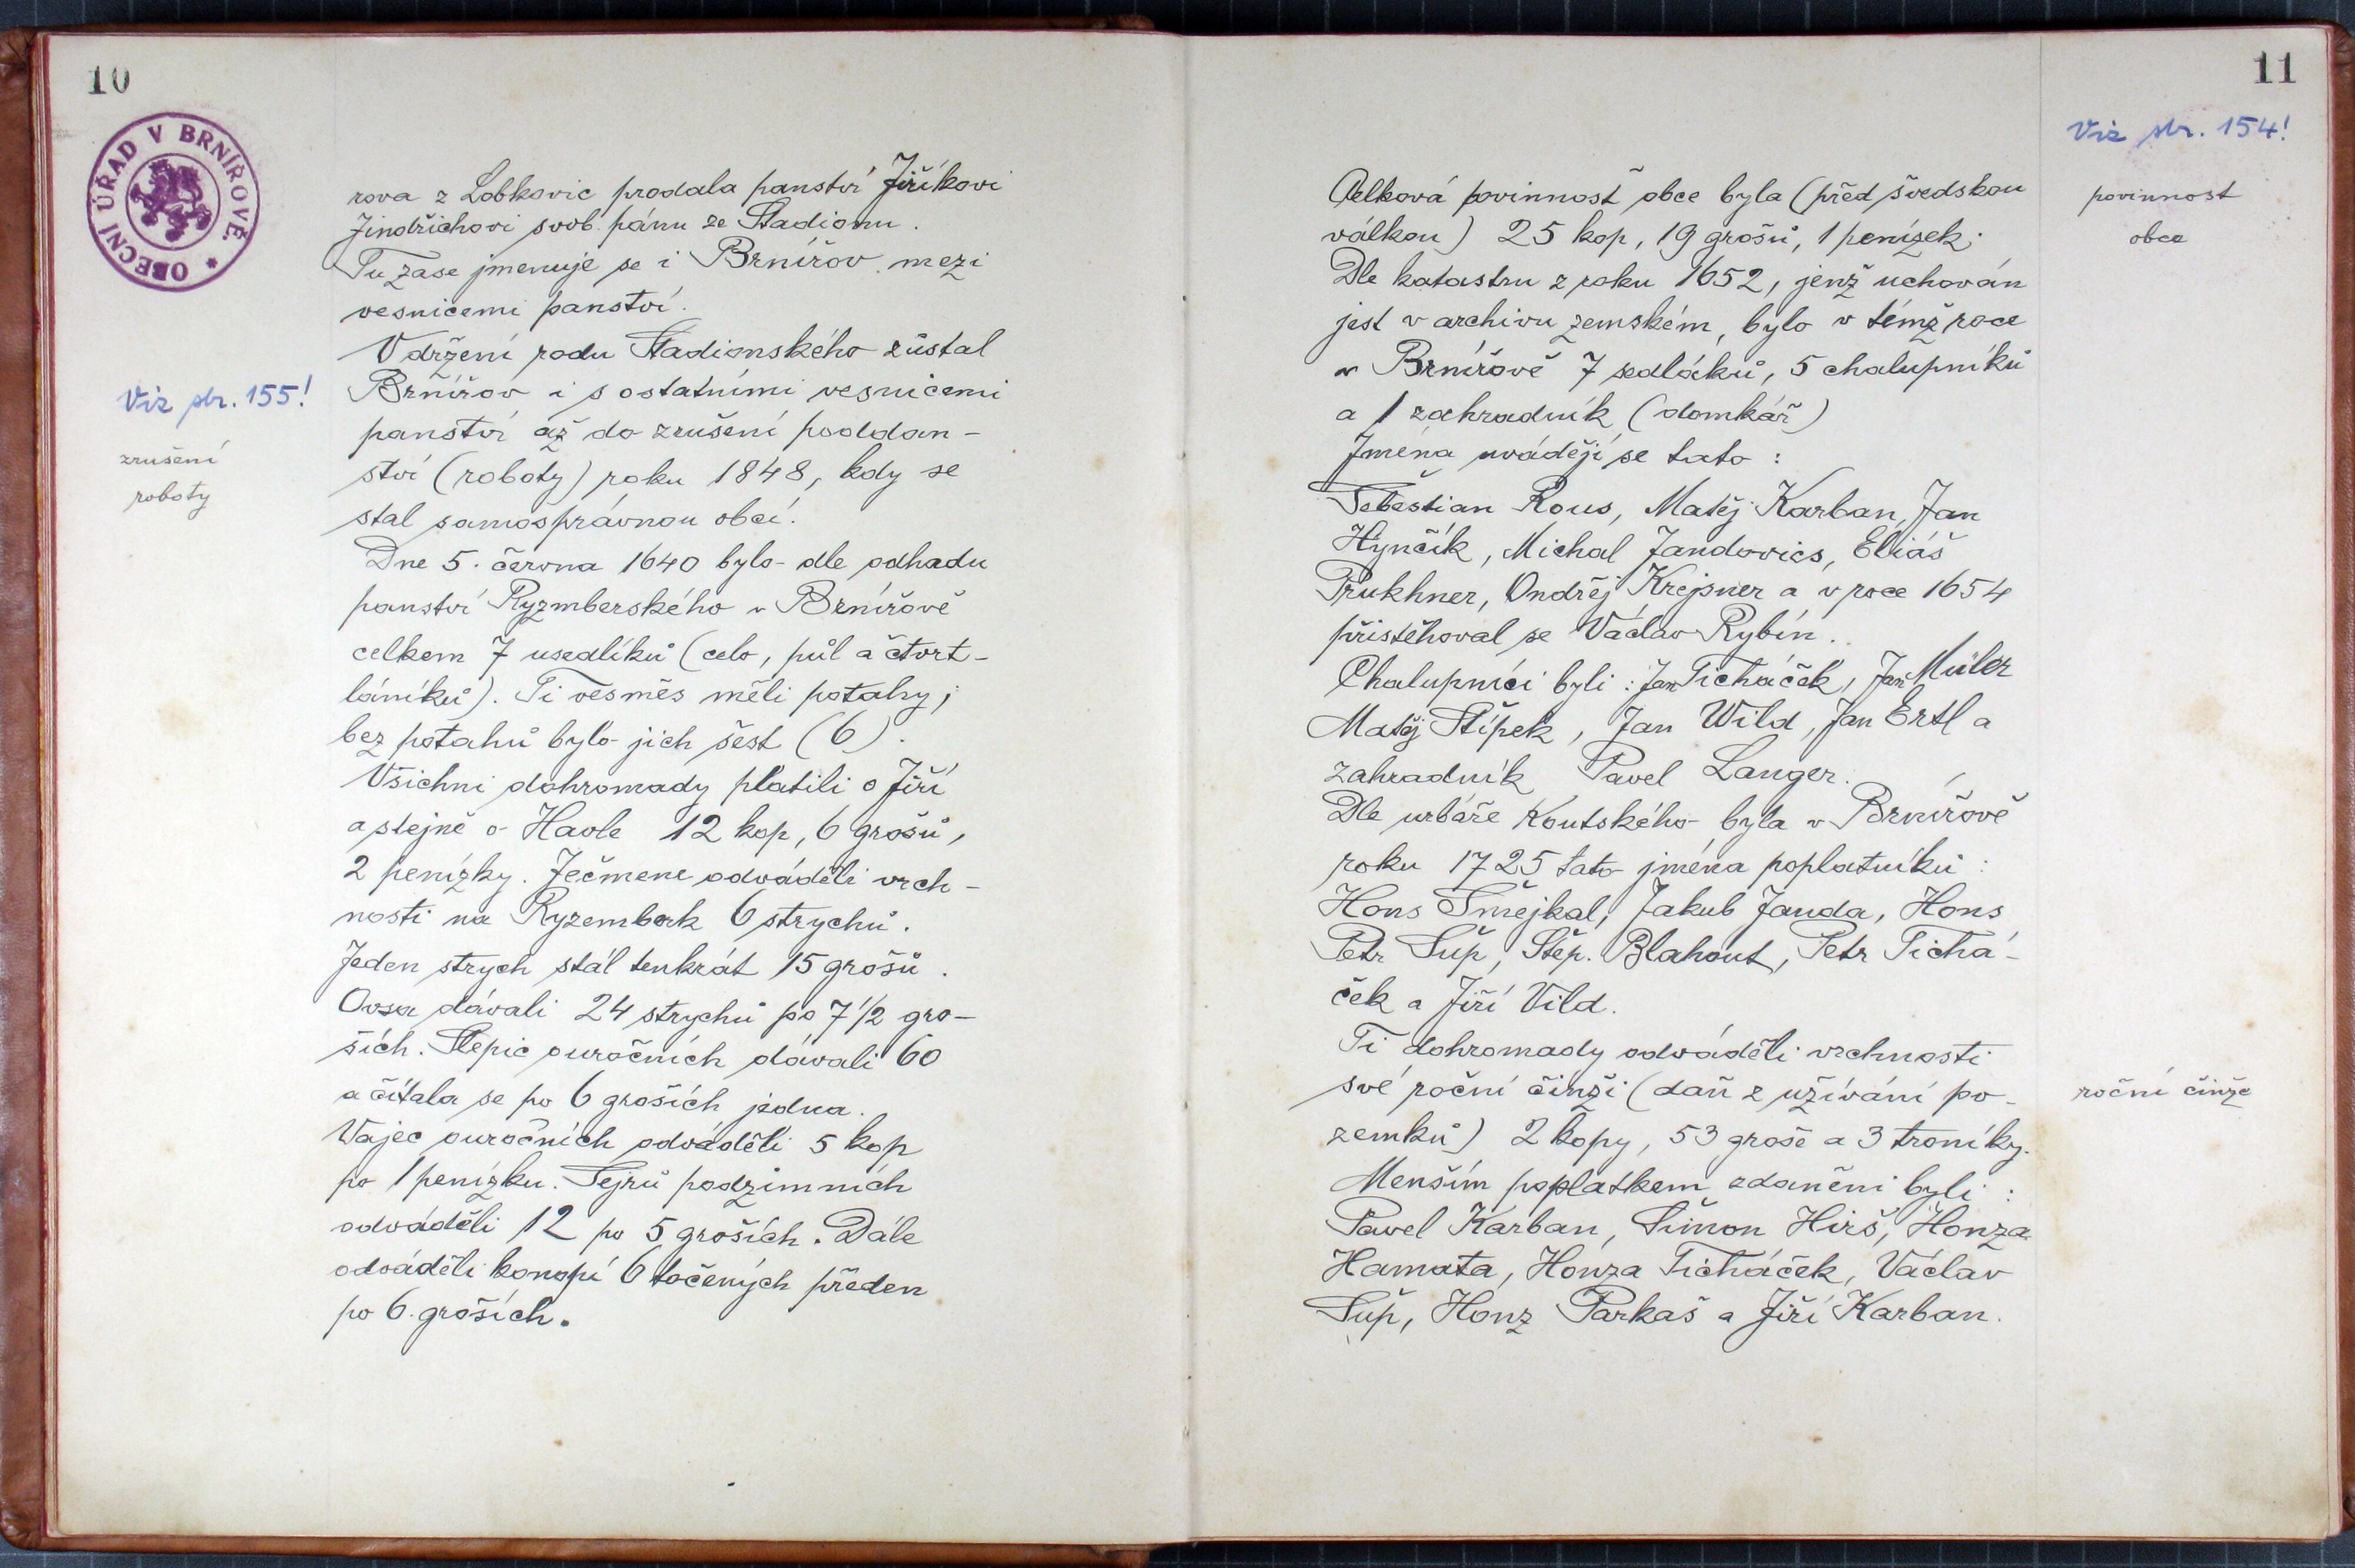 10
OBECNÍ ÚŘAD V BRNÍŘOVĚ *
rova z Lobkovic prodala panství Jiříkovi
Jindřichovi svob. pánu ze Stadionu.
Tu zase jmenuje se i Brnířov mezi
vesnicemi panství.
V držení rodu Stadionského zůstal
Viz str. 155!
Brnířov i s ostatními vesnicemi
panství až do zrušení poddan-
zrušení
roboty
ství (roboty) roku 1848, kdy se
stal samosprávnou obcí.
Dne 5. června 1640 bylo dle odhadu
panství Ryzmberského v Brnířově
celkem 7 usedlíků (celo, půl a čtvrt-
láníků). Ti vesměs měli potahy;
bez potahů bylo jich šest (6).
Všichni dohromady platili o Jiří
a stejně o Havle 12 kop, 6 grošů,
2 penízky. Ječmene odváděli vrch-
nosti na Ryzemberk 6 strychů.
Jeden strych stál tenkrát 15 grošů.
Ovsa dávali 24 strychů po 7 1/2 gro-
ších. Slepic ouročních dávali 60
a čítala se po 6 groších jedna.
Vajec ouročních odváděli 5 kop
po 1 penízku. Sejrů podzimních
odváděli 12 po 5 groších. Dále
odváděli konopí 6 točených přaden
po 6 groších.
11
Viz str. 154!
Celková povinnost obce byla (před švedskou
povinnost
obce
válkou) 25 kop, 19 grošů, 1 penízek.
Dle katastru z roku 1652, jenž uchován
jest v archivu zemském, bylo v témž roce
v Brnířově 7 sedláků, 5 chalupníků
a 1 zahradník (domkář)
Jména uvádějí se tato:
Šebestian Rous, Matěj Karban, Jan
Hynčík, Michal Jandovics, Eliáš
Prukhner, Ondřej Krejsner a v roce 1654
přistěhoval se Václav Rybín.
Chalupníci byli: Jan Ticháček, Jan Müler
Matěj Štípek, Jan Wild, Jan Ertl a
zahradník Pavel Langer.
Dle urbáře Koutského byla v Brnířově
roku 1725 tato jména poplatníků:
Hons Šmejkal, Jakub Janda, Hons
Petr Šup, Štěp. Blahout, Petr Tichá-
ček a Jiří Vild.
Ti dohromady odváděli vrchnosti
své roční činži (daň z užívání po-
roční činže
zemků) 2 kopy, 53 groše a 3 troníky.
Menším poplatkem zdaněni byli:
Pavel Karban, Šimon Hirš, Honza
Hamata, Honza Ticháček, Václav
Šup, Honz Parkaš a Jiří Karban.